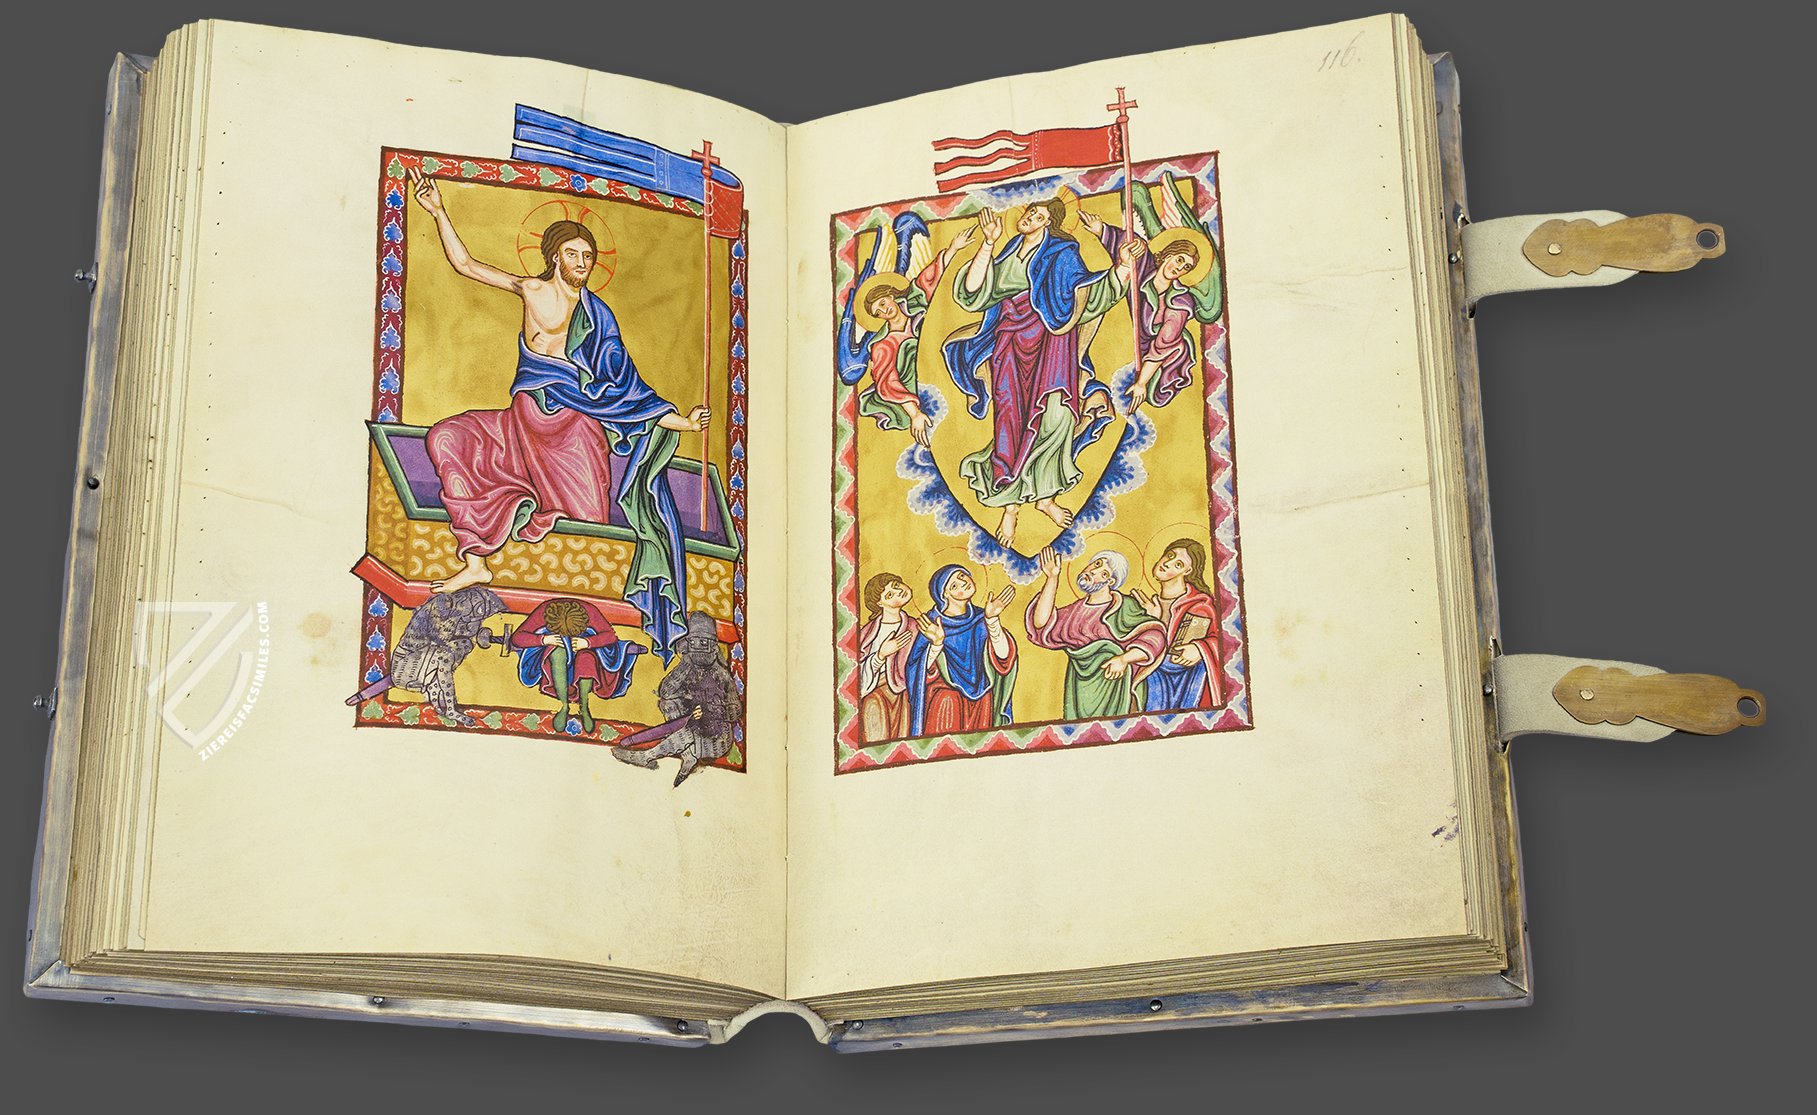 116.
ZIEREISFACSIMILES.COM